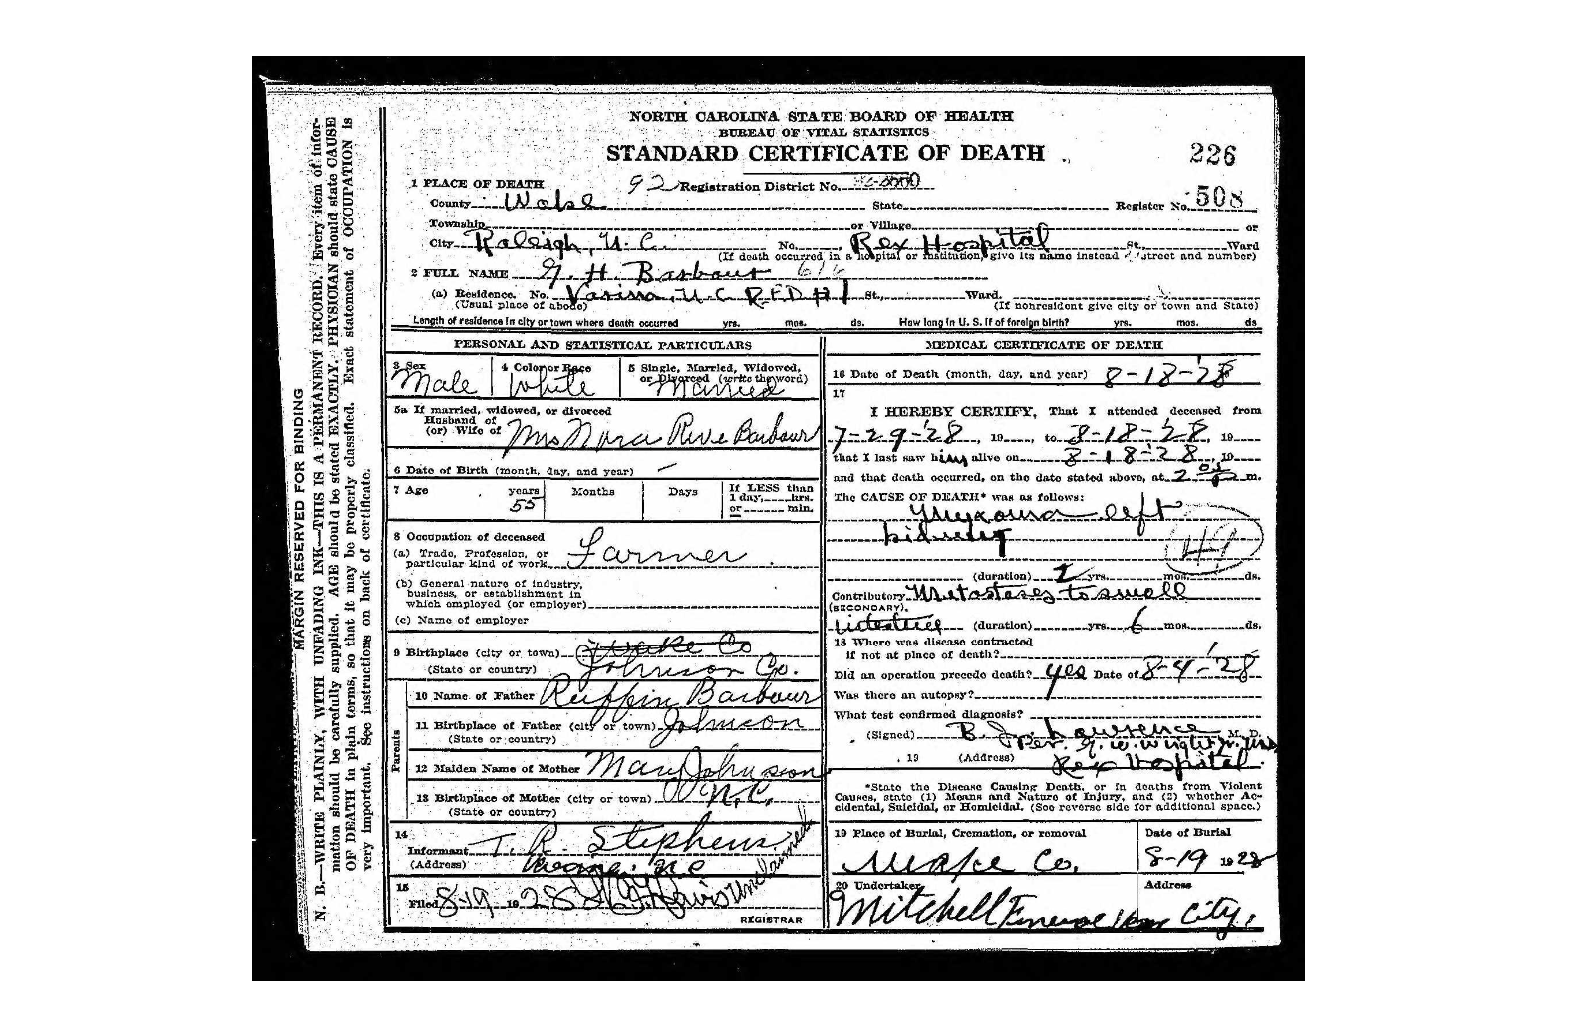 NORTH CAROLINA STATE BOARD OF HEALTH
BUREAU OF VITAL STATISTICS
STANDARD CERTIFICATE OF DEATH
226
1 PLACE OF DEATH 92 Registration District No.
County Wake State Register No. 508
Township or Village or
City Raleigh, N.C. No. Rex Hospital St., Ward
(If death occurred in a hospital or institution, give its name instead of street and number)
2 FULL NAME G. H. Barbour
(a) Residence. No. Varina, N.C. R.F.D #1 St., Ward.
(Usual place of abode) (If nonresident give city or town and State)
Length of residence in city or town where death occurred yrs. mos. ds. How long in U. S. if of foreign birth? yrs. mos. ds
PERSONAL AND STATISTICAL PARTICULARS
3 Sex Male
4 Color or Race White
5 Single, Married, Widowed, or Divorced (write the word) Married
5a If married, widowed, or divorced
Husband of
(or) Wife of Mrs Nora Barbour
6 Date of Birth (month, day, and year) —
7 Age years 55 Months Days If LESS than
1 day, hrs.
or min.
8 Occupation of deceased
(a) Trade, Profession, or
particular kind of work Farmer
(b) General nature of industry,
business, or establishment in
which employed (or employer)
(c) Name of employer
9 Birthplace (city or town) Wake Co
(State or country) Johnson Co.
Parents
10 Name of Father Ruffin Barbour
11 Birthplace of Father (city or town) Johnson
(State or country)
12 Maiden Name of Mother Mary Johnson
13 Birthplace of Mother (city or town) N.C.
(State or country)
14
Informant T. R. Stephens
(Address) N C
15
Filed 8-19 1928
REGISTRAR
MEDICAL CERTIFICATE OF DEATH
16 Date of Death (month, day, and year) 8-18-'28
17
I HEREBY CERTIFY, That I attended deceased from
7-29-'28, 19, to 8-18-'28, 19
that I last saw him alive on 8-18-'28, 19
and that death occurred, on the date stated above, at m.
The CAUSE OF DEATH* was as follows:
Myxoma left
kidney
49
(duration) 2 yrs. mos. ds.
Contributory Metastases to small
(SECONDARY)
intestine (duration) yrs. 6 mos. ds.
18 Where was disease contracted
if not at place of death?
Did an operation precede death? yes Date of 8-4-'28
Was there an autopsy?
What test confirmed diagnosis?
(Signed) B. J. Lawrence M. D.
Per. G. W. Wright Jr.
, 19 (Address) Rex Hospital.
*State the Disease Causing Death, or in deaths from Violent
Causes, state (1) Means and Nature of Injury, and (2) whether Ac-
cidental, Suicidal, or Homicidal. (See reverse side for additional space.)
19 Place of Burial, Cremation, or removal
Wake Co.
Date of Burial
8-19 1928
20 Undertaker
Mitchell Funeral Home
Address
City.
MARGIN RESERVED FOR BINDING
N. B.—WRITE PLAINLY, WITH UNFADING INK—THIS IS A PERMANENT RECORD. Every item of infor-
mation should be carefully supplied. AGE should be stated EXACTLY. PHYSICIAN should state CAUSE
OF DEATH in plain terms, so that it may be properly classified. Exact statement of OCCUPATION is
very important. See instructions on back of certificate.